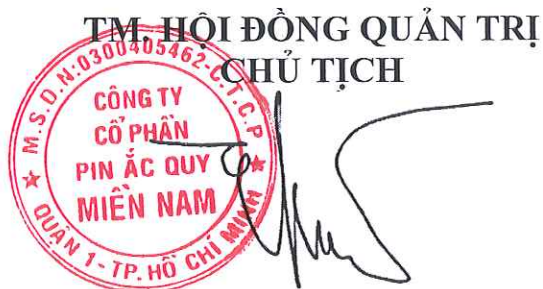 TM. HỘI ĐỒNG QUẢN TRỊ
CHỦ TỊCH
M.S.D.N:0300405462-C.T.C.P
CÔNG TY
CỔ PHẦN
PIN ẮC QUY
MIỀN NAM
QUẬN 1-TP. HỒ CHÍ MINH